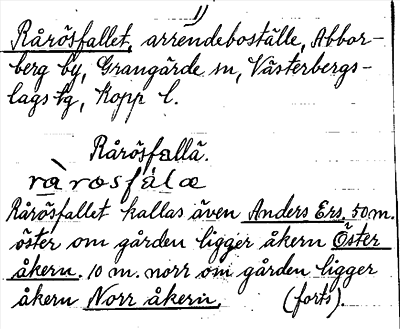 1)
Rårösfallet, arrendeboställe, Abbor-
berg by, Grangärde sn, Västerbergs-
lags tg, Kopp l.
Rårösfallä.
ràrosfalæ
Rårösfallet kallas även Anders Ers. 50 m.
öster om gården ligger åkern Öster
åkern. 10 m. norr om gården ligger
åkern Norr åkern. (forts).